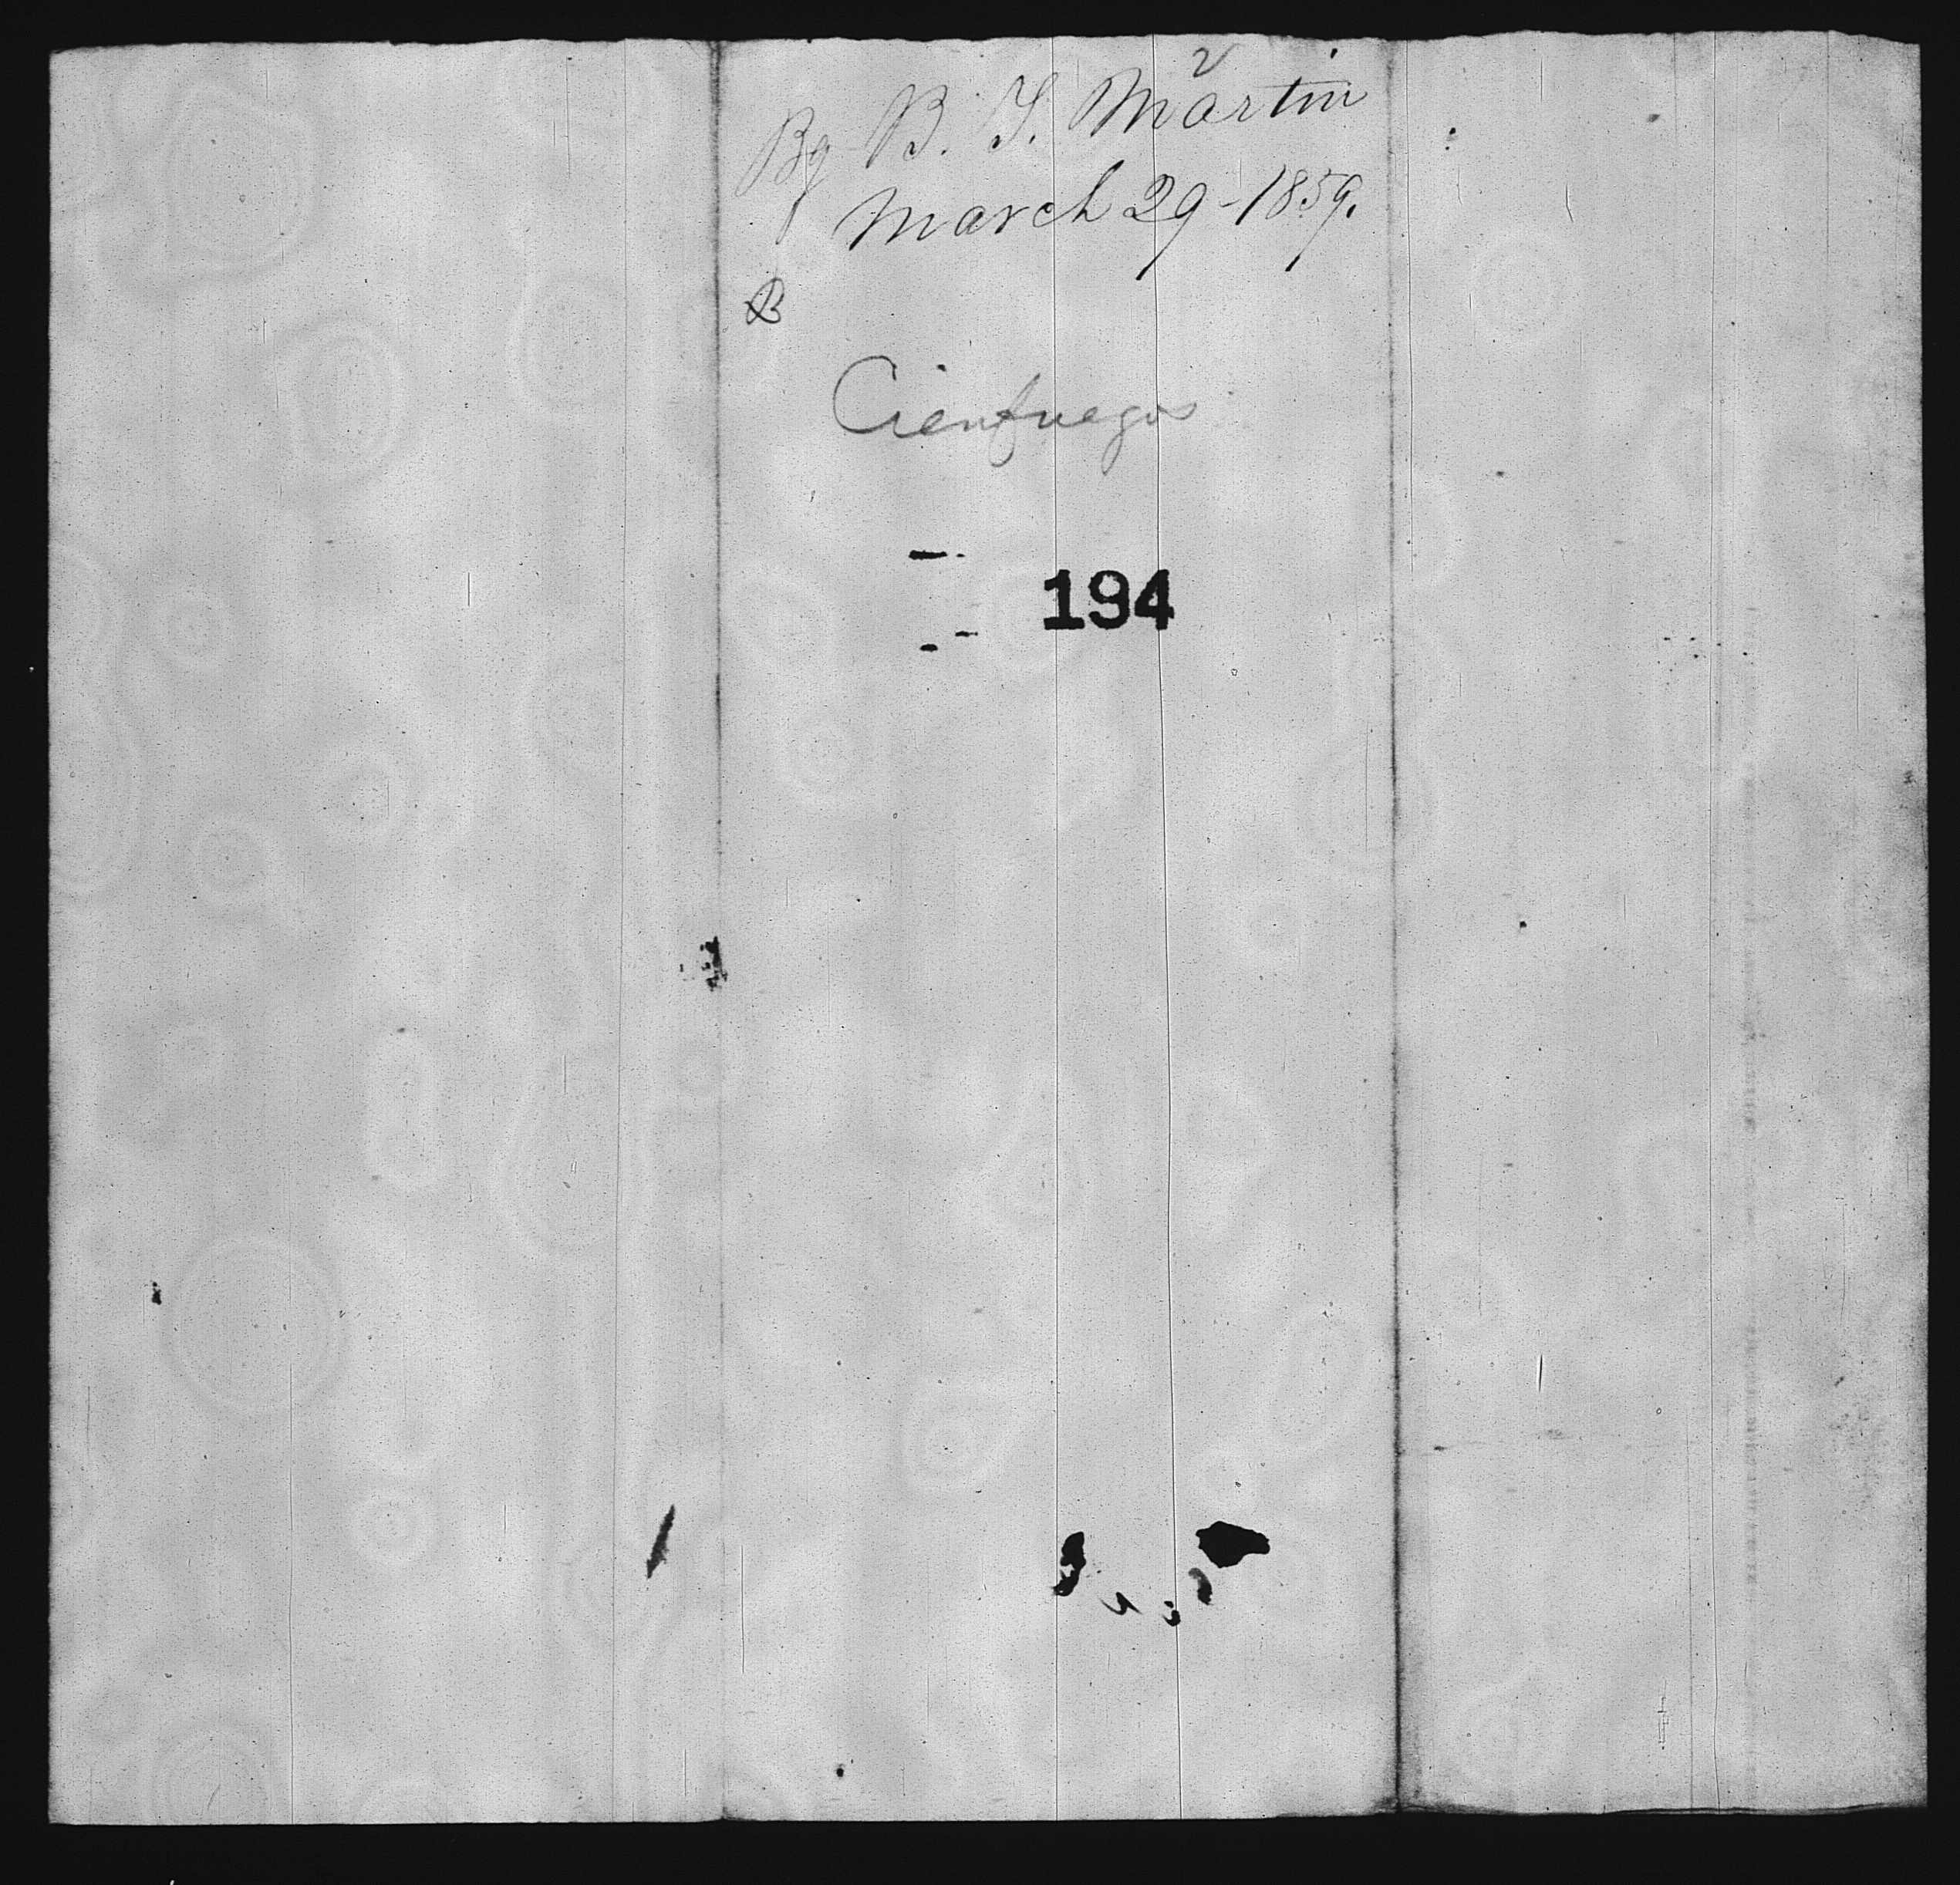 Bg B. T. Martin
March 29-1859.
B
Cienfuegos
194